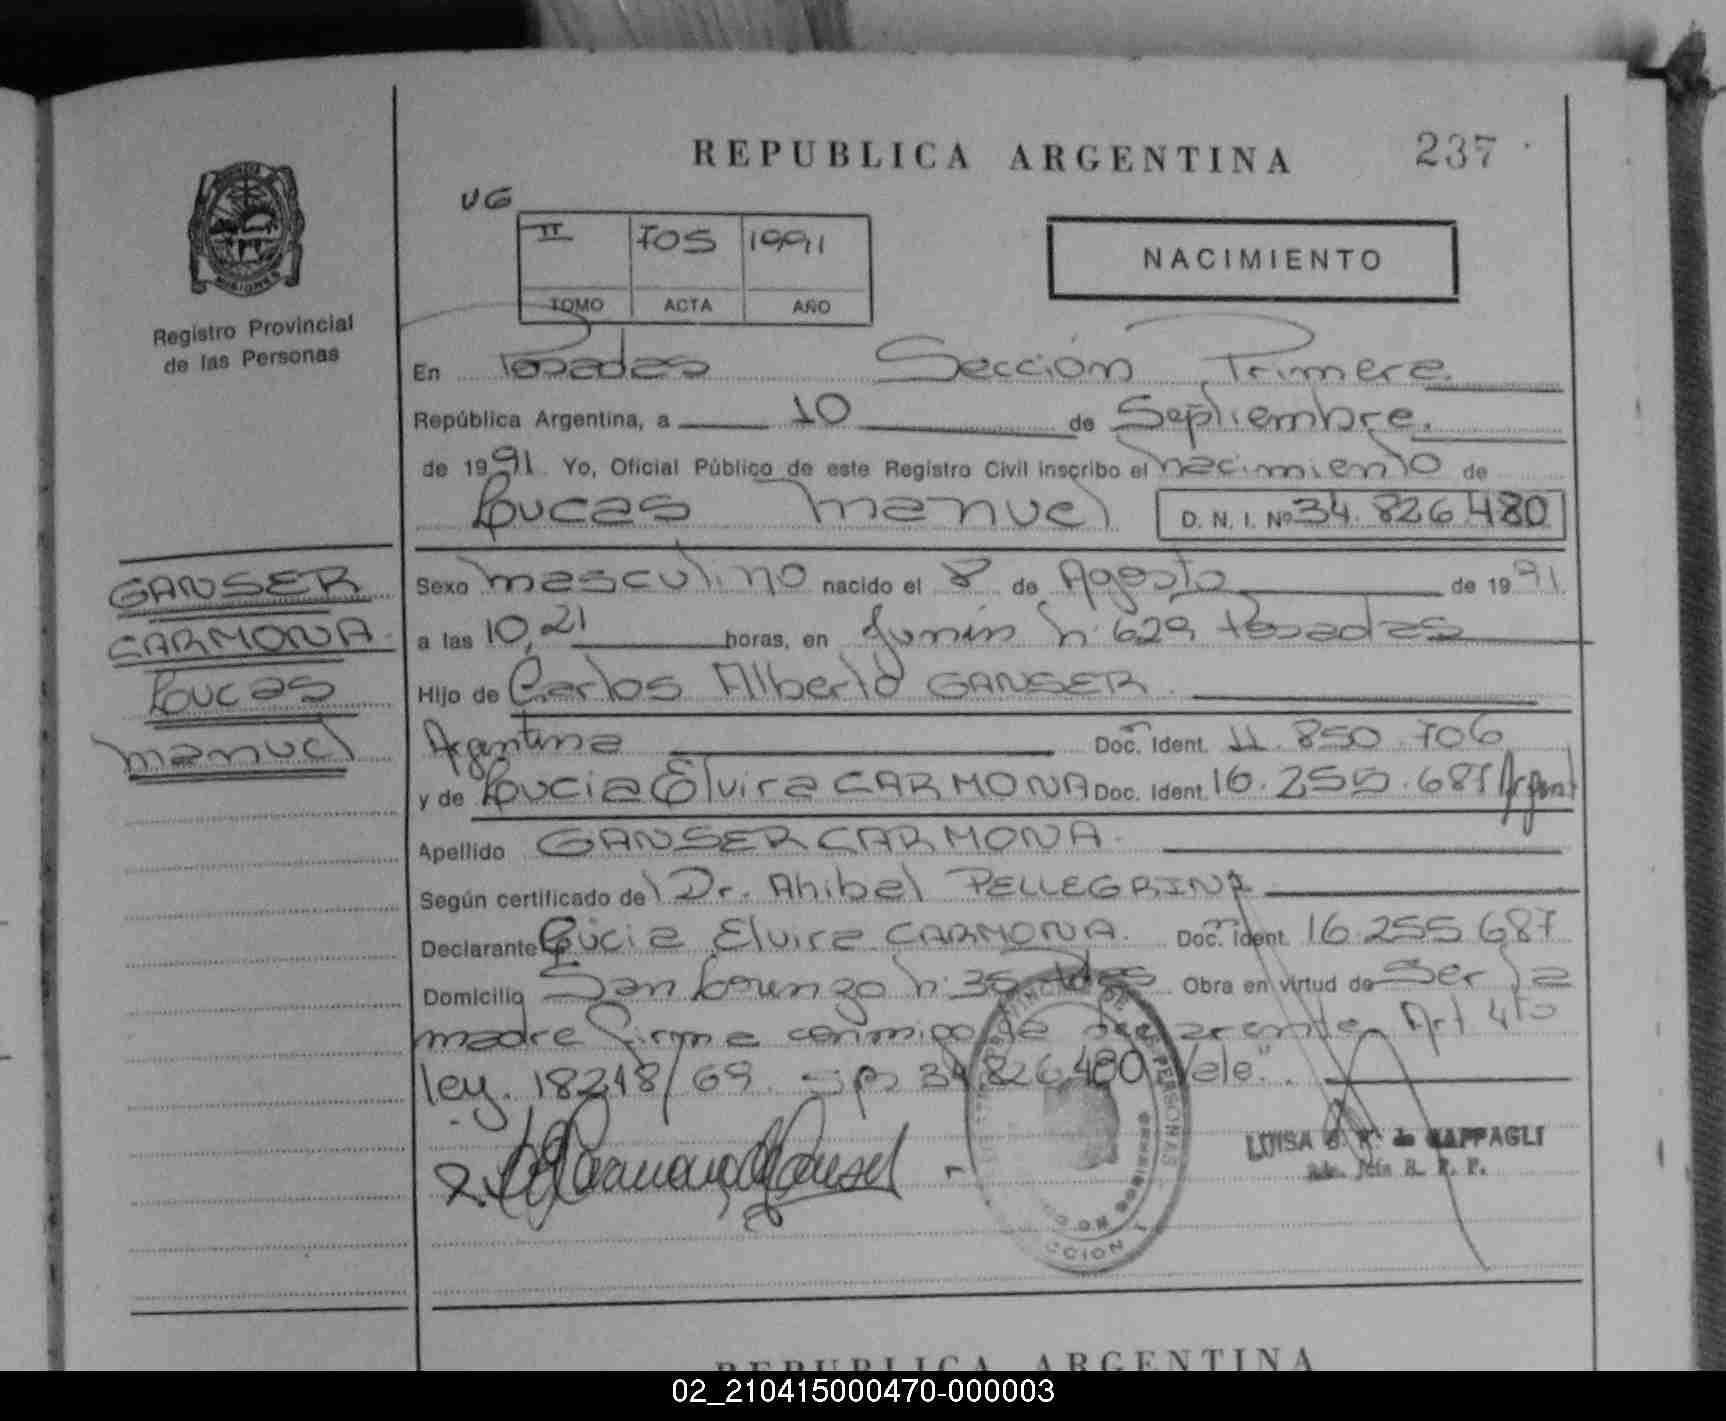 REPUBLICA ARGENTINA
237
MISIONES
Registro Provincial
de las Personas
UG
II 705 1991
TOMO ACTA AÑO
NACIMIENTO
En Posadas Sección Primera
República Argentina, a 10 de Septiembre.
de 1991 Yo, Oficial Público de este Registro Civil inscribo el nacimiento de
Lucas Manuel D. N. I. Nº 34.826.480
GANSER
CARMONA
Lucas
Manuel
Sexo masculino nacido el 8 de Agosto de 1991
a las 10,21 horas, en Junín n: 629 Posadas
Hijo de Carlos Alberto GANSER
Argentina Doc. Ident. 11.850.706
y de Lucia Elvira CARMONA Doc. Ident. 16.255.687 Argent
Apellido GANSER CARMONA.
Según certificado de Dr. Anibal PELLEGRINI
Declarante Lucia Elvira CARMONA. Doc. Ident. 16.255.687
Domicilio San Lorenzo n: 35 Pdas Obra en virtud de Ser la
madre firma conmigo la declarante Art 4to
ley. 18248/69. S/R 34.826.480 Vale".
LUISA
REPUBLICA ARGENTINA
02_210415000470-000003